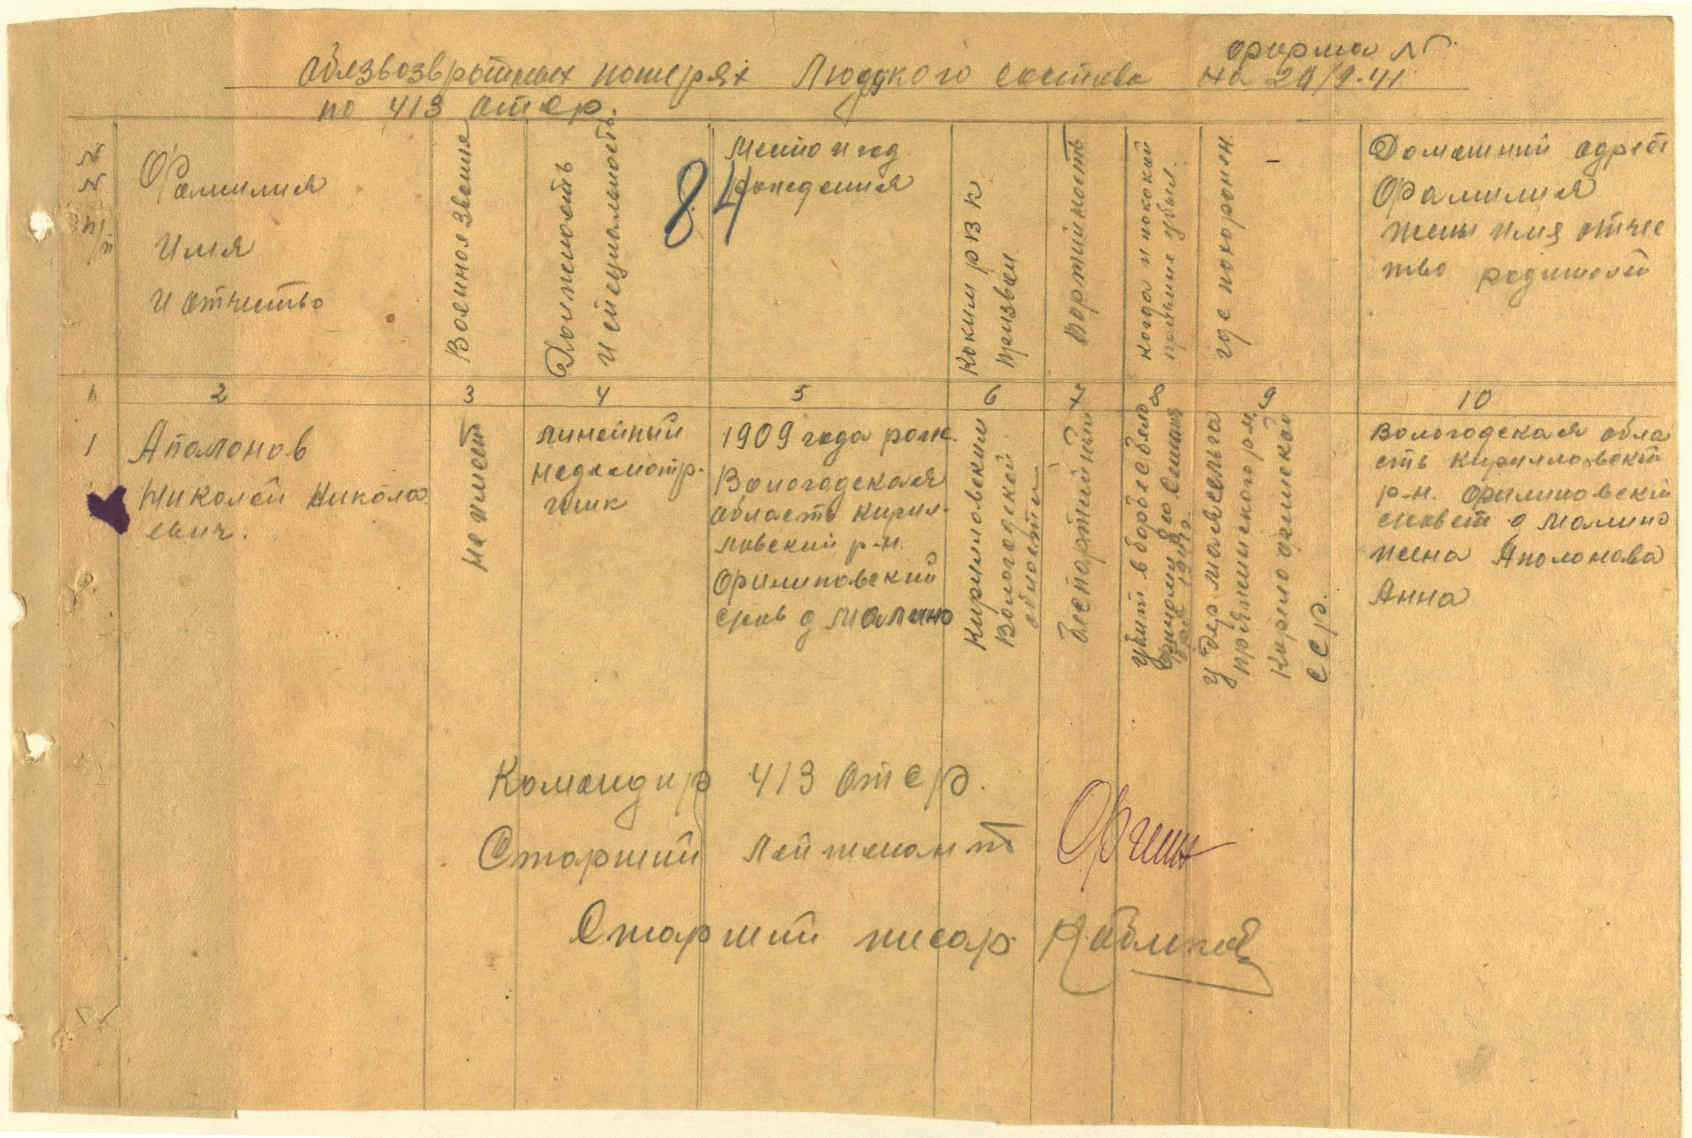 форма №
о безвозвратных потерях Людского состава на 29/9-41
по 413 отср.
№ № п/п
Фамилия
Имя
и отчество
Военное звание
Должность
и специальность
84
Место и год
рождения
Каким РВК
призван
Партийность
когда и по какой
причине убыл.
где похоронен
Домашний адрес
Фамилия
жены имя отчес
тво родителей
1 2 3 4 5 6 7 8 9 10
1
Аполонов
Николай Никола
евич.
не имеет
линейный
надсмотр-
щик
1909 года рожд.
Вологодская
область Кирил-
ловский р-н.
Филиповский
с/сов д Малино
Кирилловским
Вологодской
области
Беспартийный
убит в борьбе с бело
финнами 8го Сентяб
ря 1941г.
у дер. Маясельга
Пряжинского р.
Карело Финской
ССР.
Вологодская обла
сть Кирилловский
р-н. Филиповский
с/совет д Малино
жена Аполонова
Анна
Командир 413 отср.
Старший лейтенант
Старший писарь